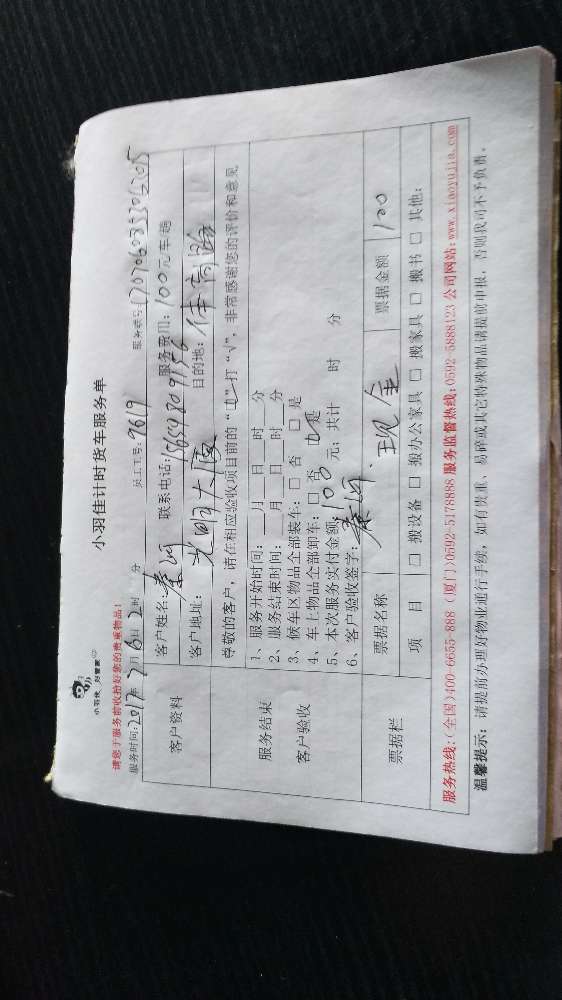 小羽佳计时货车服务单
小羽佳 好管家
请您于服务前收拾好您的贵重物品!
服务时间:2017年7月6日2时 分 员工工号:9619 服务编号:
客户资料
客户姓名:秦河 联系电话:15654809156 服务费用:100元/车趟
客户地址:光明大厦 目的地:
尊敬的客户,请在相应验收项目前的“口”打“√”,非常感谢您的评价和意见
服务结束
客户验收
1、服务开始时间:__月__日__时__分
2、服务结束时间:__月__日__时__分
3、候车区物品全部装车:□ 否 □ 是
4、车上物品全部卸车:□ 否 □ 是
5、本次服务实付金额:100元;共计 时 分
6、客户验收签字:秦河. 现金
票据栏
票据名称 票据金额 100
项 目 □ 搬设备 □ 搬办公家具 □ 搬家具 □ 搬书 □ 其他:
服务热线:(全国)400-6655-888 (厦门)0592-5178888 服务监督热线:0592-5888123 公司网站:www.xiaoyujia.com
温馨提示:请提前办理好物业通行手续,如有贵重、易碎或其它特殊物品请提前申报,否则我司不予负责。